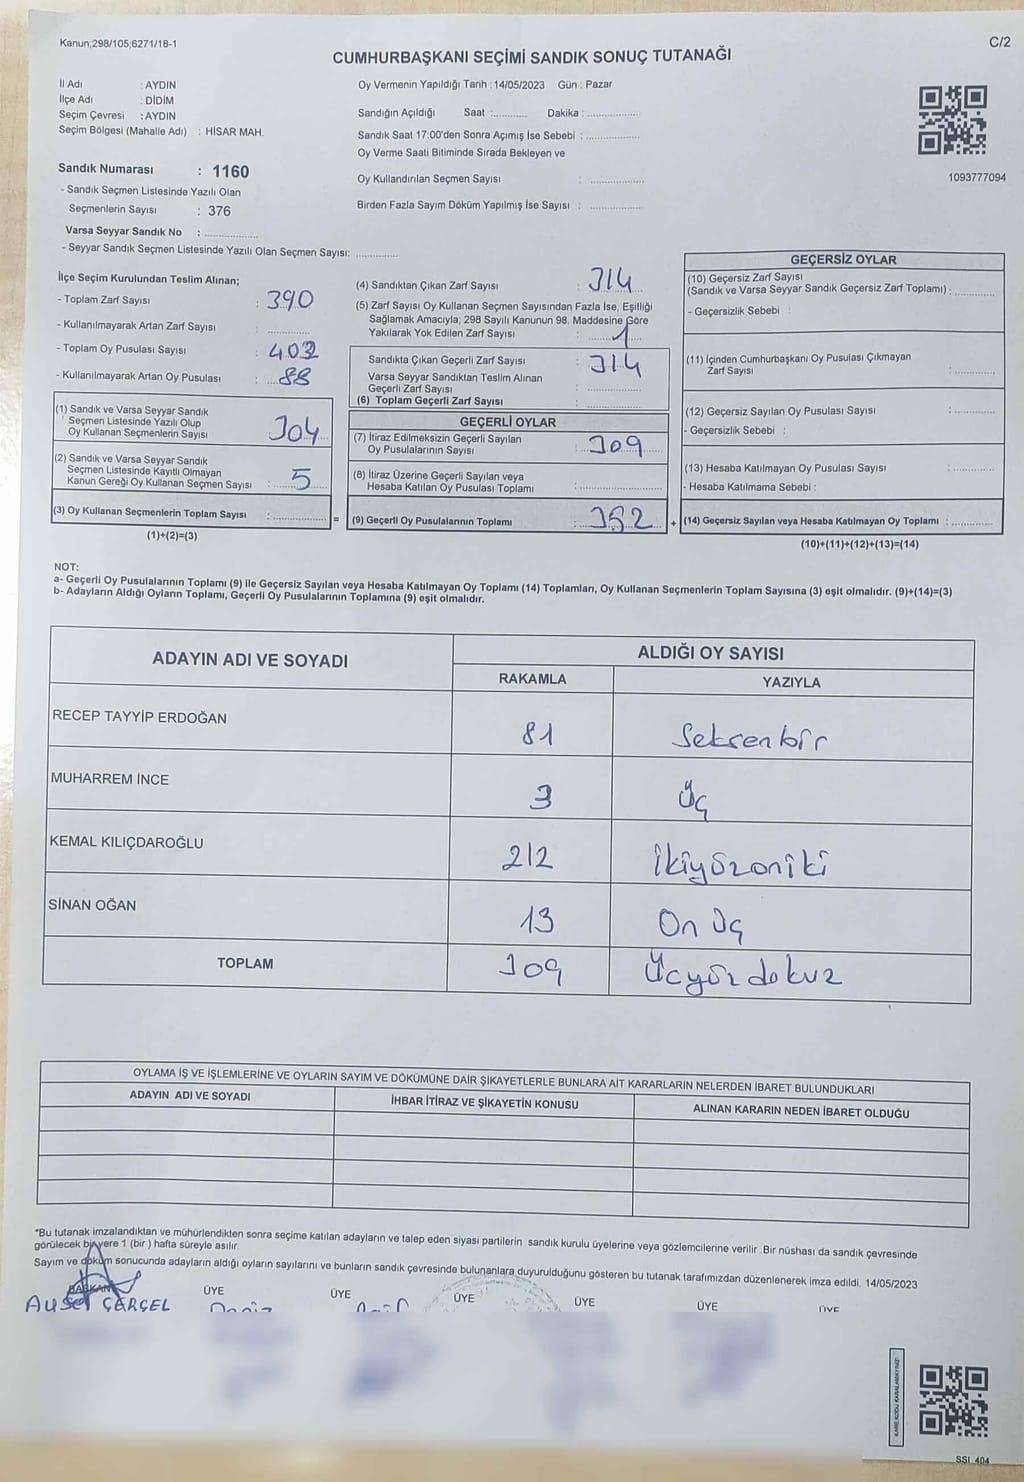 Kanun;298/105;6271/18-1
C/2
CUMHURBAŞKANI SEÇİMİ SANDIK SONUÇ TUTANAĞI
İl Adı : AYDIN
İlçe Adı : DİDİM
Seçim Çevresi : AYDIN
Seçim Bölgesi (Mahalle Adı) : HİSAR MAH.
Oy Vermenin Yapıldığı Tarih : 14/05/2023 Gün : Pazar
Sandığın Açıldığı Saat :............ Dakika :................
Sandık Saat 17:00'den Sonra Açımış İse Sebebi :................
Oy Verme Saati Bitiminde Sırada Bekleyen ve
Oy Kullandırılan Seçmen Sayısı : ................
Birden Fazla Sayım Döküm Yapılmış İse Sayısı : ................
1093777094
Sandık Numarası : 1160
- Sandık Seçmen Listesinde Yazılı Olan
Seçmenlerin Sayısı : 376
Varsa Seyyar Sandık No : ................
- Seyyar Sandık Seçmen Listesinde Yazılı Olan Seçmen Sayısı: ............
İlçe Seçim Kurulundan Teslim Alınan;
- Toplam Zarf Sayısı : 390
- Kullanılmayarak Artan Zarf Sayısı : ............
- Toplam Oy Pusulası Sayısı : 402
- Kullanılmayarak Artan Oy Pusulası : 88
(1) Sandık ve Varsa Seyyar Sandık
Seçmen Listesinde Yazılı Olup
Oy Kullanan Seçmenlerin Sayısı 304
(2) Sandık ve Varsa Seyyar Sandık
Seçmen Listesinde Kayıtlı Olmayan
Kanun Gereği Oy Kullanan Seçmen Sayısı : 5
(3) Oy Kullanan Seçmenlerin Toplam Sayısı : ................ =
(1)+(2)=(3)
(4) Sandıktan Çıkan Zarf Sayısı : 314
(5) Zarf Sayısı Oy Kullanan Seçmen Sayısından Fazla İse, Eşitliği
Sağlamak Amacıyla; 298 Sayılı Kanunun 98. Maddesine Göre
Yakılarak Yok Edilen Zarf Sayısı : 1
Sandıkta Çıkan Geçerli Zarf Sayısı : 314
Varsa Seyyar Sandıktan Teslim Alınan
Geçerli Zarf Sayısı : ................
(6) Toplam Geçerli Zarf Sayısı : ................
GEÇERLİ OYLAR
(7) İtiraz Edilmeksizin Geçerli Sayılan
Oy Pusulalarının Sayısı : 309
(8) İtiraz Üzerine Geçerli Sayılan veya
Hesaba Katılan Oy Pusulası Toplamı : ................
(9) Geçerli Oy Pusulalarının Toplamı : +
GEÇERSİZ OYLAR
(10) Geçersiz Zarf Sayısı
(Sandık ve Varsa Seyyar Sandık Geçersiz Zarf Toplamı) : ............
- Geçersizlik Sebebi :
(11) İçinden Cumhurbaşkanı Oy Pusulası Çıkmayan
Zarf Sayısı : ............
(12) Geçersiz Sayılan Oy Pusulası Sayısı : ............
- Geçersizlik Sebebi :
(13) Hesaba Katılmayan Oy Pusulası Sayısı : ............
- Hesaba Katılmama Sebebi :
(14) Geçersiz Sayılan veya Hesaba Katılmayan Oy Toplamı : ............
(10)+(11)+(12)+(13)=(14)
NOT:
a- Geçerli Oy Pusulalarının Toplamı (9) ile Geçersiz Sayılan veya Hesaba Katılmayan Oy Toplamı (14) Toplamları, Oy Kullanan Seçmenlerin Toplam Sayısına (3) eşit olmalıdır. (9)+(14)=(3)
b- Adayların Aldığı Oyların Toplamı, Geçerli Oy Pusulalarının Toplamına (9) eşit olmalıdır.
ADAYIN ADI VE SOYADI
ALDIĞI OY SAYISI
RAKAMLA YAZIYLA
RECEP TAYYİP ERDOĞAN 81 Seksenbir
MUHARREM İNCE 3 Üç
KEMAL KILIÇDAROĞLU 212 İkiyüzoniki
SİNAN OĞAN 13 On Üç
TOPLAM 309 Üçyüz dokuz
OYLAMA İŞ VE İŞLEMLERİNE VE OYLARIN SAYIM VE DÖKÜMÜNE DAİR ŞİKAYETLERLE BUNLARA AİT KARARLARIN NELERDEN İBARET BULUNDUKLARI
ADAYIN ADI VE SOYADI İHBAR İTİRAZ VE ŞİKAYETİN KONUSU ALINAN KARARIN NEDEN İBARET OLDUĞU
*Bu tutanak imzalandıktan ve mühürlendikten sonra seçime katılan adayların ve talep eden siyasi partilerin sandık kurulu üyelerine veya gözlemcilerine verilir .Bir nüshası da sandık çevresinde
görülecek bir yere 1 (bir ) hafta süreyle asılır.
Sayım ve döküm sonucunda adayların aldığı oyların sayılarını ve bunların sandık çevresinde bulunanlara duyurulduğunu gösteren bu tutanak tarafımızdan düzenlenerek imza edildi. 14/05/2023
BAŞKAN ÜYE ÜYE ÜYE ÜYE ÜYE ÜYE
ÇERÇEL
SSI 404